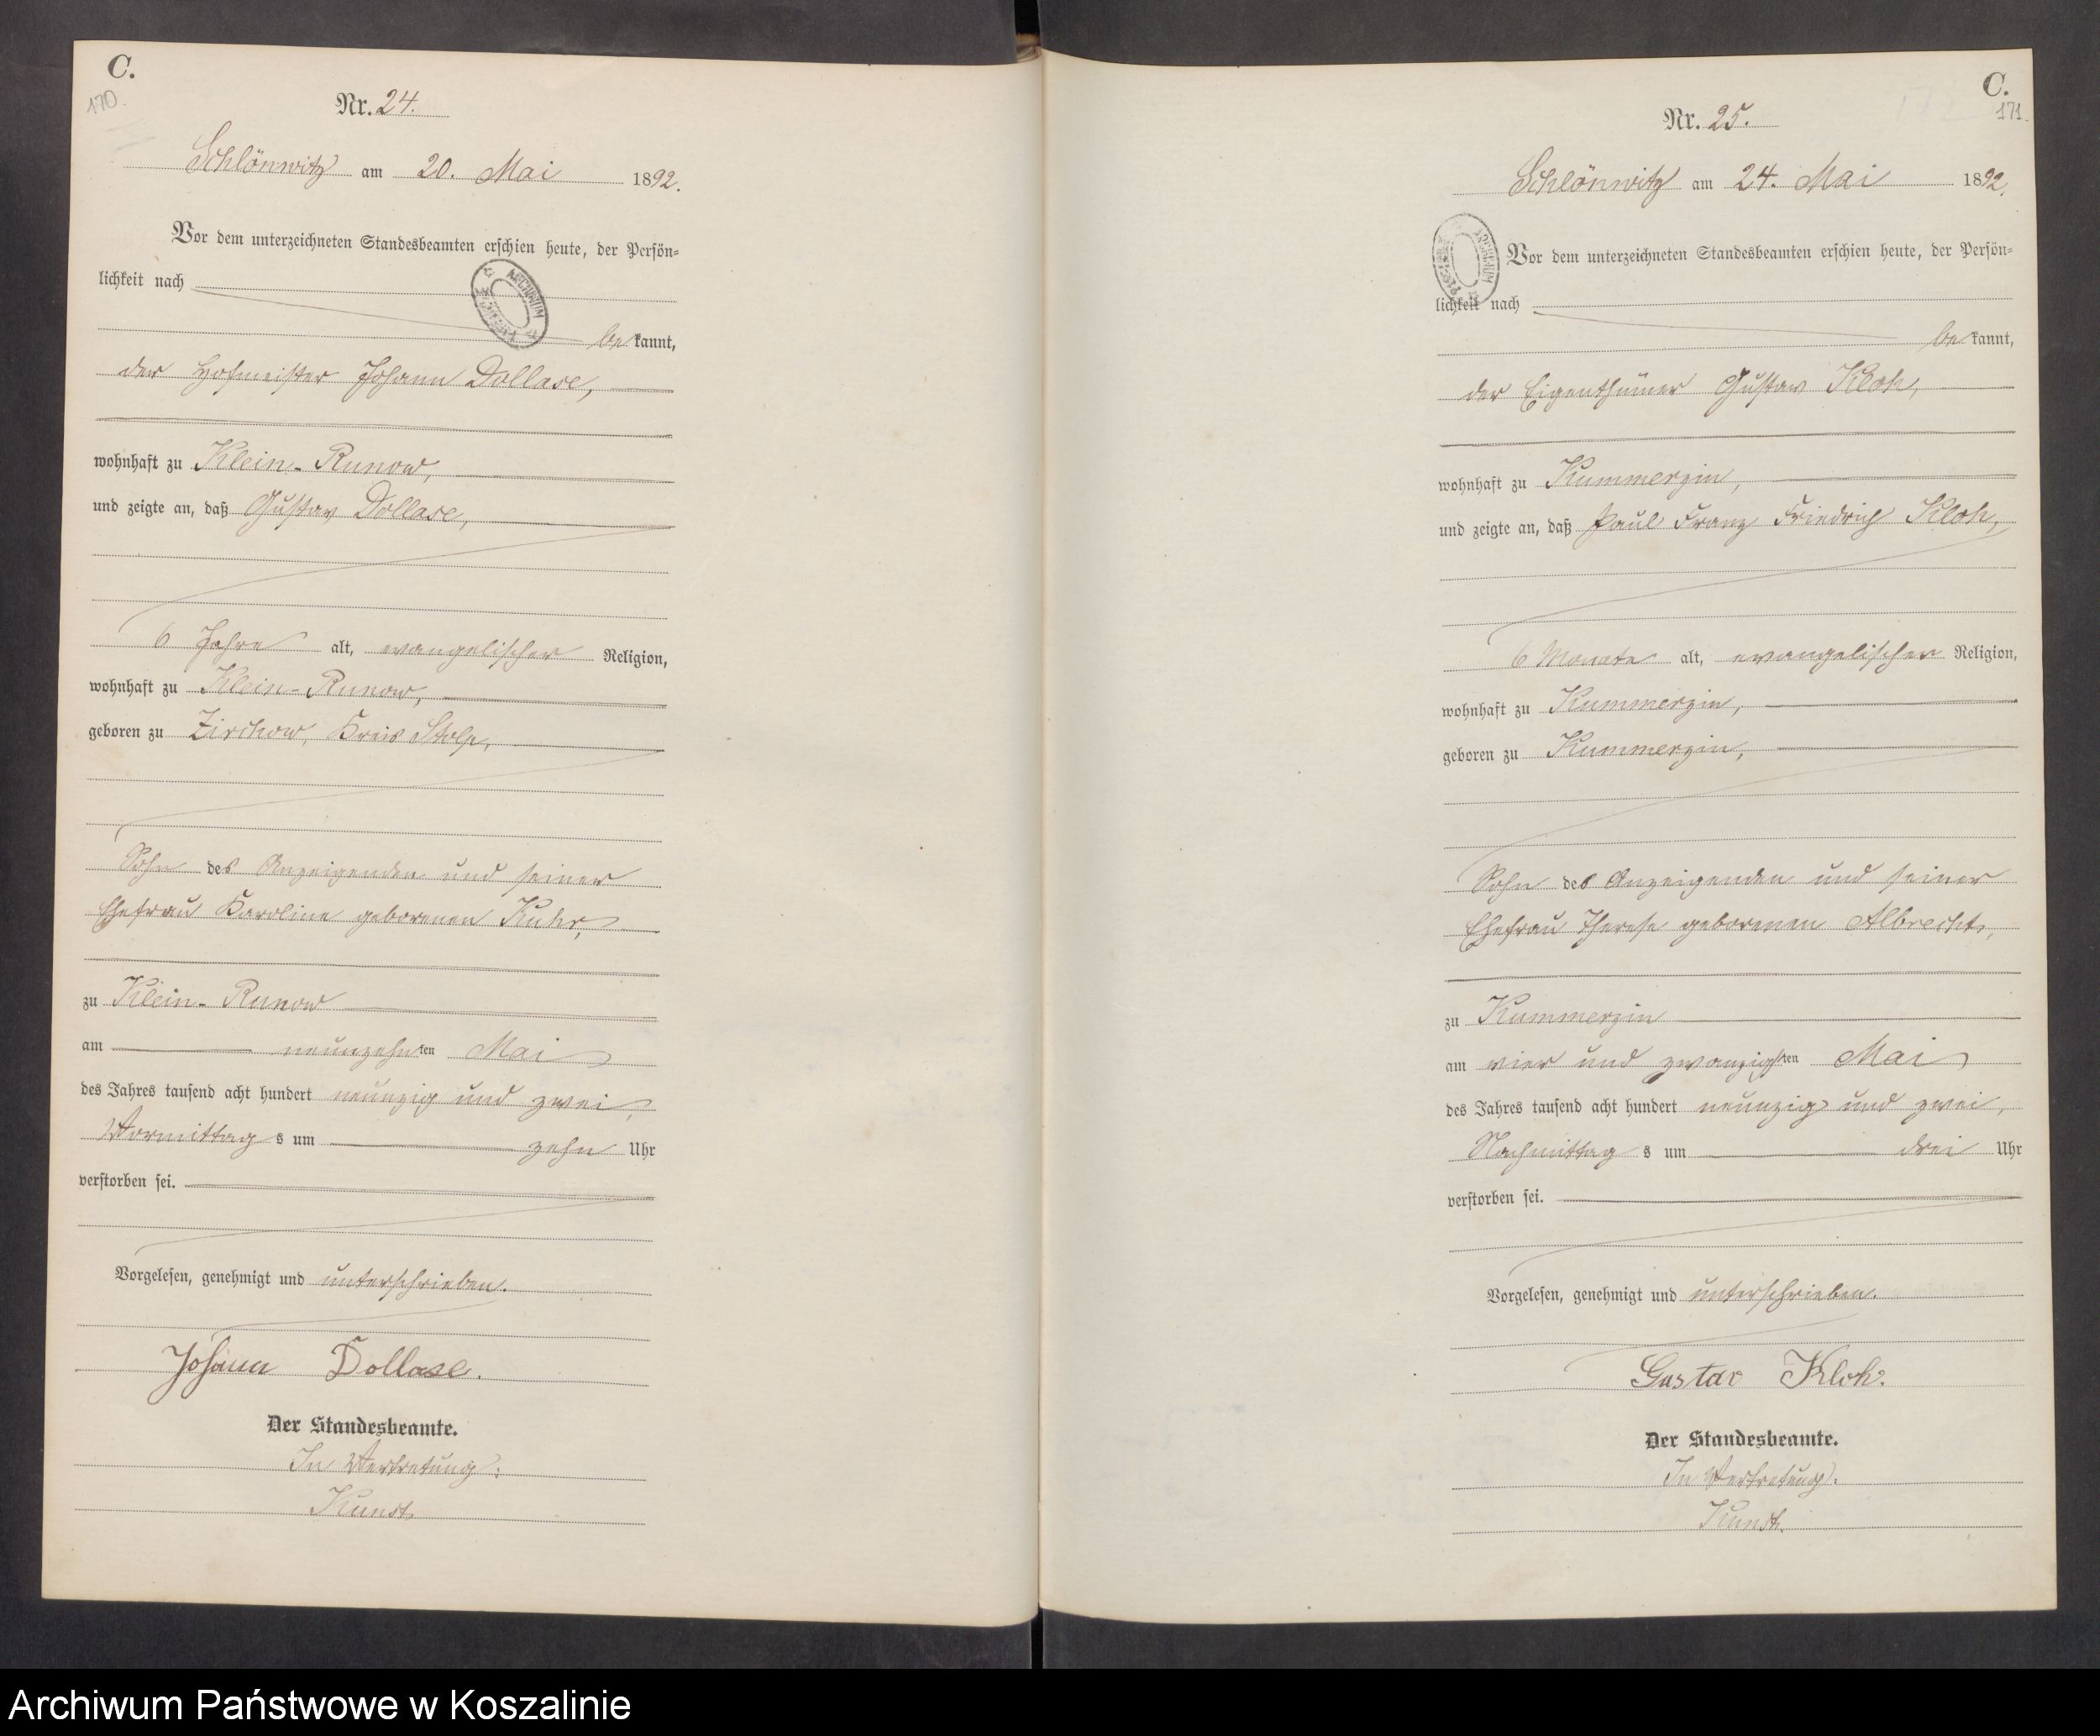 C.
170.
Nr. 24.
Schlönwitz am 20. Mai 1892.
Vor dem unterzeichneten Standesbeamten erschien heute, der Persön-
lichkeit nach
bekannt,
der Hofmeister Johann Dollase,
wohnhaft zu Klein-Runow,
und zeigte an, daß Gustav Dollase,
6 Jahre alt, evangelischer Religion,
wohnhaft zu Klein-Runow,
geboren zu Zirchow, Kreis Stolp,
Sohn des Anzeigenden und seiner
Ehefrau Karoline geborenen Kuhr,
zu Klein-Runow
am neunzehnten Mai
des Jahres tausend acht hundert neunzig und zwei,
Vormittags um zehn Uhr
verstorben sei.
Vorgelesen, genehmigt und unterschrieben.
Johann Dollase.
Der Standesbeamte.
In Vertretung:
Kunst.
C.
171.
Nr. 25.
Schlönwitz am 24. Mai 1892.
ARCHIWUM
Vor dem unterzeichneten Standesbeamten erschien heute, der Persön-
lichkeit nach
bekannt,
der Eigenthümer Gustav Kloh,
wohnhaft zu Kummerzin,
und zeigte an, daß Paul Franz Friedrich Kloh,
6 Monate alt, evangelischer Religion,
wohnhaft zu Kummerzin,
geboren zu Kummerzin,
Sohn des Anzeigenden und seiner
Ehefrau Therese geborenen Albrecht,
zu Kummerzin
am vier und zwanzigsten Mai
des Jahres tausend acht hundert neunzig und zwei,
Nachmittags um drei Uhr
verstorben sei.
Vorgelesen, genehmigt und unterschrieben.
Gustav Kloh.
Der Standesbeamte.
In Vertretung:
Kunst.
Archiwum Państwowe w Koszalinie